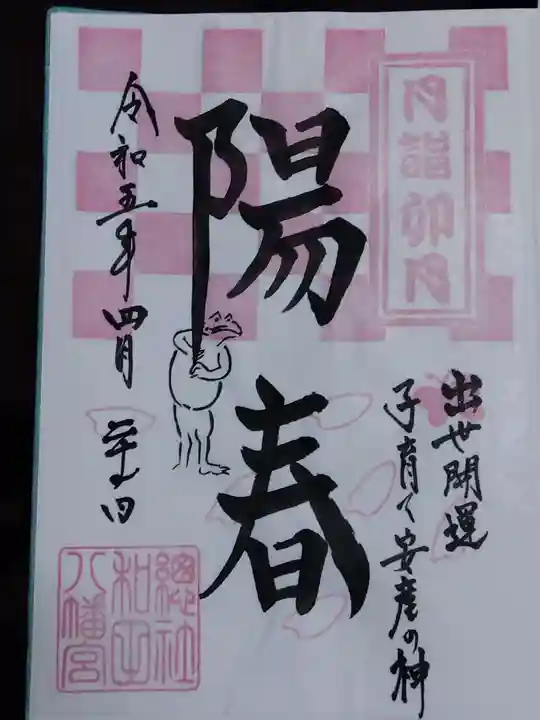 月詣卯月
出世開運
子育て安産の神
陽春
令和五年四月二十四日
總社
和田
八幡宮